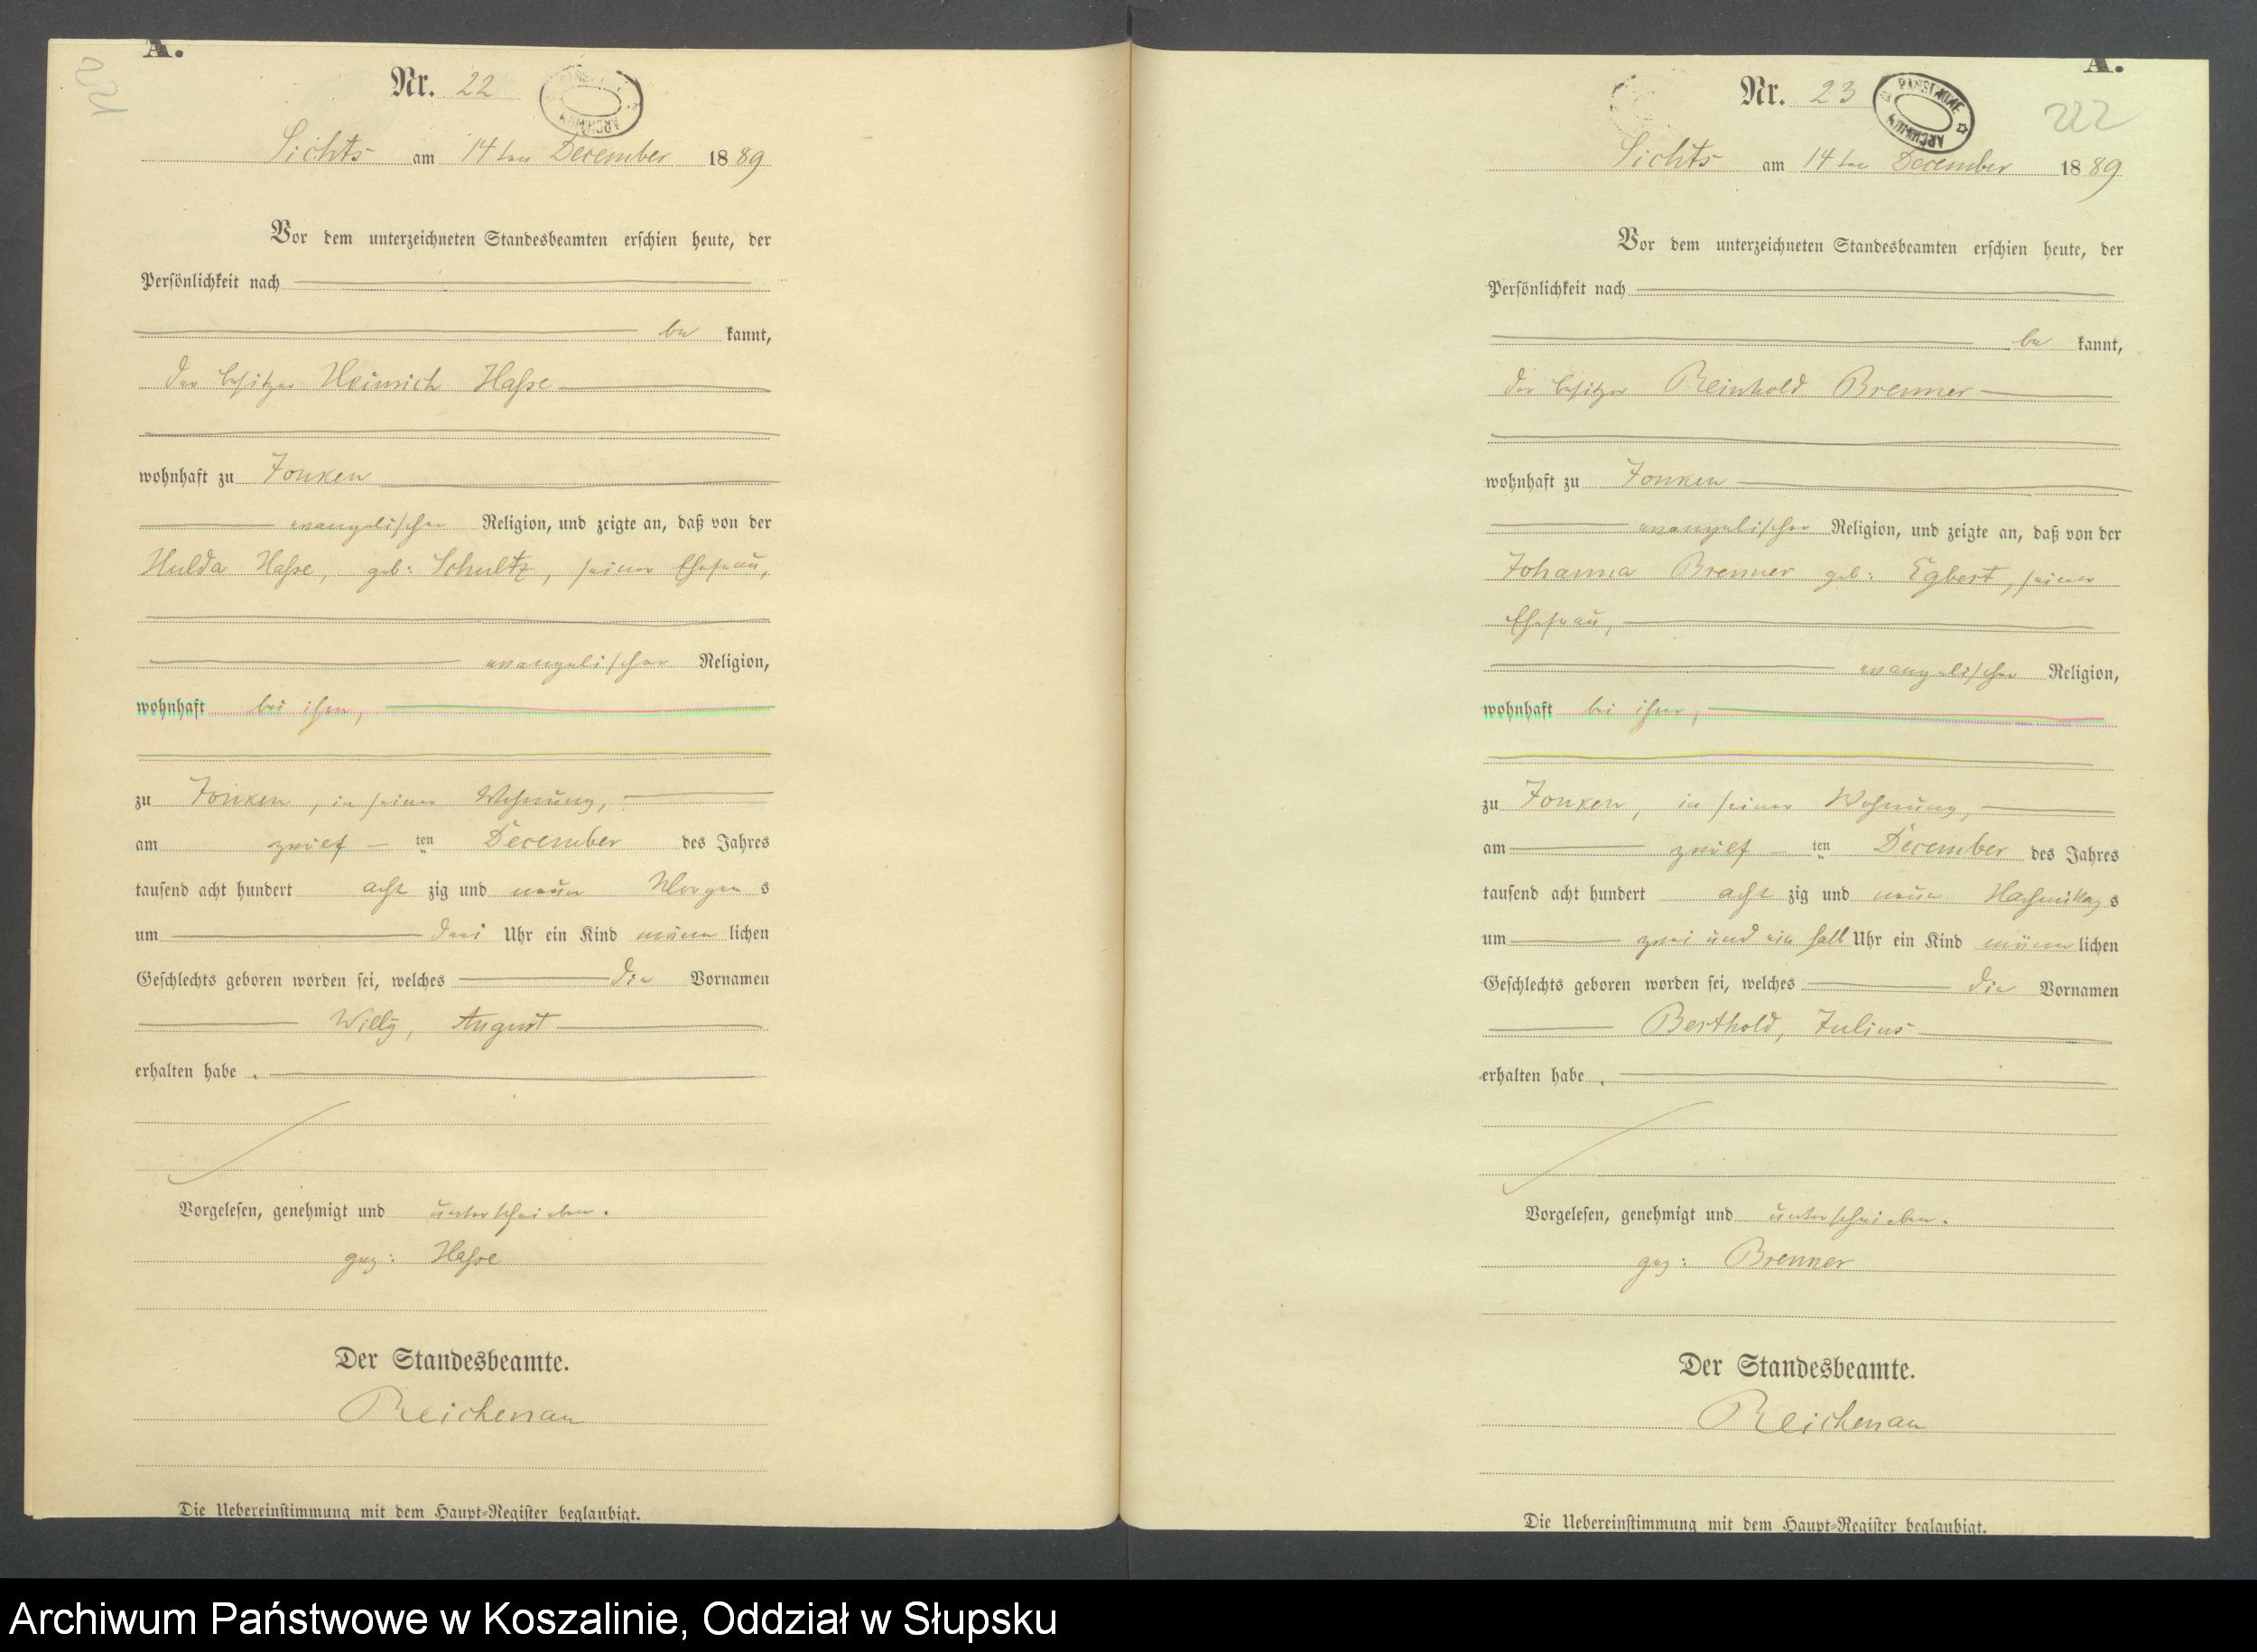 221
A.
Nr. 22
Sichts am 14ten December 1889
Vor dem unterzeichneten Standesbeamten erschien heute, der
Persönlichkeit nach
be kannt,
der Besitzer Heinrich Hasse
wohnhaft zu Jonken
evangelischer Religion, und zeigte an, daß von der
Hulda Hasse, geb: Schultz, seiner Ehefrau,
evangelischer Religion,
wohnhaft bei ihm,
zu Jonken, in seiner Wohnung,
am zwölf ten December des Jahres
tausend acht hundert acht zig und neun Morgen s
um drei Uhr ein Kind männ lichen
Geschlechts geboren worden sei, welches die Vornamen
Willy, August
erhalten habe.
Vorgelesen, genehmigt und unterschrieben.
gez: Hasse
Der Standesbeamte.
Reichenau
Die Uebereinstimmung mit dem Haupt-Register beglaubigt.
A.
Nr. 23
PAŃSTWOWE ARCHIWUM
222
Sichts am 14ten December 1889
Vor dem unterzeichneten Standesbeamten erschien heute, der
Persönlichkeit nach
be kannt,
der Besitzer Reinhold Brenner
wohnhaft zu Jonken
evangelischer Religion, und zeigte an, daß von der
Johanna Brenner geb: Egbert, seiner
Ehefrau,
evangelischer Religion,
wohnhaft bei ihm,
zu Jonken, in seiner Wohnung,
am zwölf ten December des Jahres
tausend acht hundert acht zig und neun Nachmittag s
um zwei und ein halb Uhr ein Kind männ lichen
Geschlechts geboren worden sei, welches die Vornamen
Berthold, Julius
erhalten habe.
Vorgelesen, genehmigt und unterschrieben.
gez: Brenner
Der Standesbeamte.
Reichenau
Die Uebereinstimmung mit dem Haupt-Register beglaubigt.
Archiwum Państwowe w Koszalinie, Oddział w Słupsku